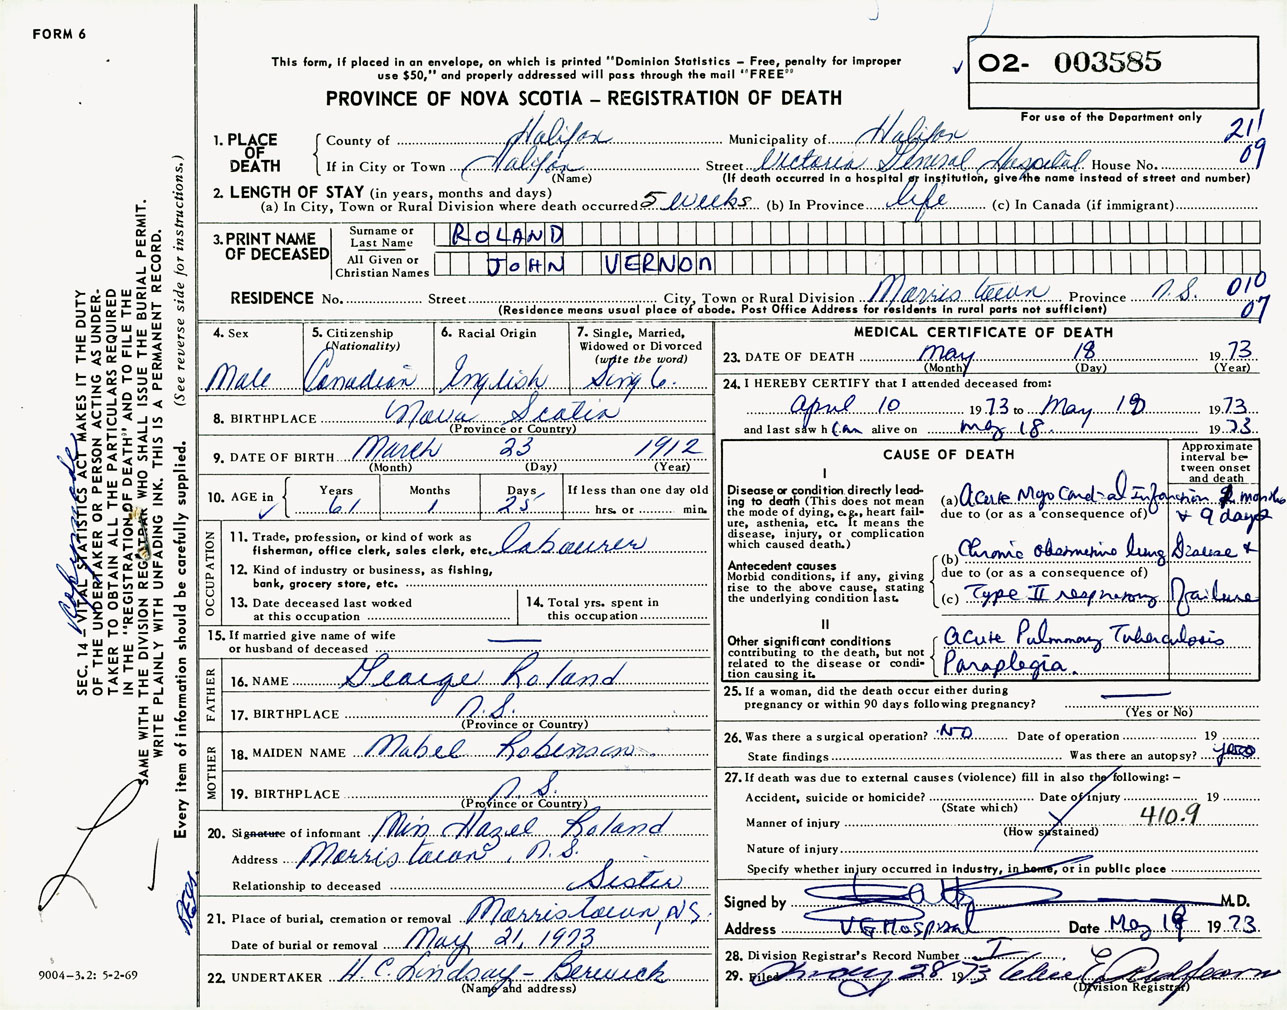 FORM 6
This form, if placed in an envelope, on which is printed "Dominion Statistics – Free, penalty for improper
use $50," and properly addressed will pass through the mail "FREE"
PROVINCE OF NOVA SCOTIA – REGISTRATION OF DEATH
O2- 003585
For use of the Department only
211
09
1. PLACE OF DEATH
County of Halifax Municipality of Halifax
If in City or Town Halifax Street Victoria General Hospital House No.
(Name) (If death occurred in a hospital or institution, give the name instead of street and number)
2. LENGTH OF STAY (in years, months and days)
(a) In City, Town or Rural Division where death occurred 5 weeks (b) In Province life (c) In Canada (if immigrant)
3. PRINT NAME OF DECEASED
Surname or Last Name ROLAND
All Given or Christian Names JOHN VERNON
RESIDENCE No. Street City, Town or Rural Division Morristown Province N.S. 010
(Residence means usual place of abode. Post Office Address for residents in rural parts not sufficient) 07
4. Sex
Male
5. Citizenship
(Nationality)
Canadian
6. Racial Origin
English
7. Single, Married,
Widowed or Divorced
(write the word)
Single
8. BIRTHPLACE Nova Scotia
(Province or Country)
9. DATE OF BIRTH March 23 1912
(Month) (Day) (Year)
10. AGE in Years Months Days If less than one day old
61 1 25 hrs. or min.
OCCUPATION
11. Trade, profession, or kind of work as
fisherman, office clerk, sales clerk, etc. labourer
12. Kind of industry or business, as fishing,
bank, grocery store, etc.
13. Date deceased last worked
at this occupation
14. Total yrs. spent in
this occupation
15. If married give name of wife
or husband of deceased
FATHER
16. NAME George Roland
17. BIRTHPLACE N.S.
(Province or Country)
MOTHER
18. MAIDEN NAME Mabel Robinson
19. BIRTHPLACE N.S.
(Province or Country)
20. Signature of informant Miss Hazel Roland
Address Morristown, N.S.
Relationship to deceased Sister
21. Place of burial, cremation or removal Morristown, N.S.
Date of burial or removal May 21, 1973
22. UNDERTAKER H.C. Lindsay - Berwick
(Name and address)
MEDICAL CERTIFICATE OF DEATH
23. DATE OF DEATH May 18 1973
(Month) (Day) (Year)
24. I HEREBY CERTIFY that I attended deceased from:
April 10 1973 to May 18 1973
and last saw him alive on May 18. 1973
CAUSE OF DEATH
Approximate
interval be-
tween onset
and death
I
Disease or condition directly lead-
ing to death (This does not mean
the mode of dying, e.g., heart fail-
ure, asthenia, etc. It means the
disease, injury, or complication
which caused death.)
(a) Acute Myocardial infarction 2 months
due to (or as a consequence of) + 9 days
(b) Chronic obstructive lung Disease +
due to (or as a consequence of)
(c) Type II respiratory Failure
Antecedent causes
Morbid conditions, if any, giving
rise to the above cause, stating
the underlying condition last.
II
Other significant conditions
contributing to the death, but not
related to the disease or condi-
tion causing it.
Acute Pulmonary Tuberculosis
Paraplegia.
25. If a woman, did the death occur either during
pregnancy or within 90 days following pregnancy?
(Yes or No)
26. Was there a surgical operation? NO Date of operation 19
State findings Was there an autopsy? yes
27. If death was due to external causes (violence) fill in also the following: –
Accident, suicide or homicide? Date of injury 19
(State which)
Manner of injury 410.9
(How sustained)
Nature of injury
Specify whether injury occurred in industry, in home, or in public place
Signed by M.D.
Address V G Hospital Date May 18 1973
28. Division Registrar's Record Number
29. Filed May 28 1973
(Division Registrar)
SEC. 14 – VITAL STATISTICS ACT MAKES IT THE DUTY
OF THE UNDERTAKER OR PERSON ACTING AS UNDER-
TAKER TO OBTAIN ALL THE PARTICULARS REQUIRED
IN THE "REGISTRATION OF DEATH" AND TO FILE THE
SAME WITH THE DIVISION REGISTRAR WHO SHALL ISSUE THE BURIAL PERMIT.
WRITE PLAINLY WITH UNFADING INK. THIS IS A PERMANENT RECORD.
Every item of information should be carefully supplied. (See reverse side for instructions.)
9004-3.2: 5-2-69